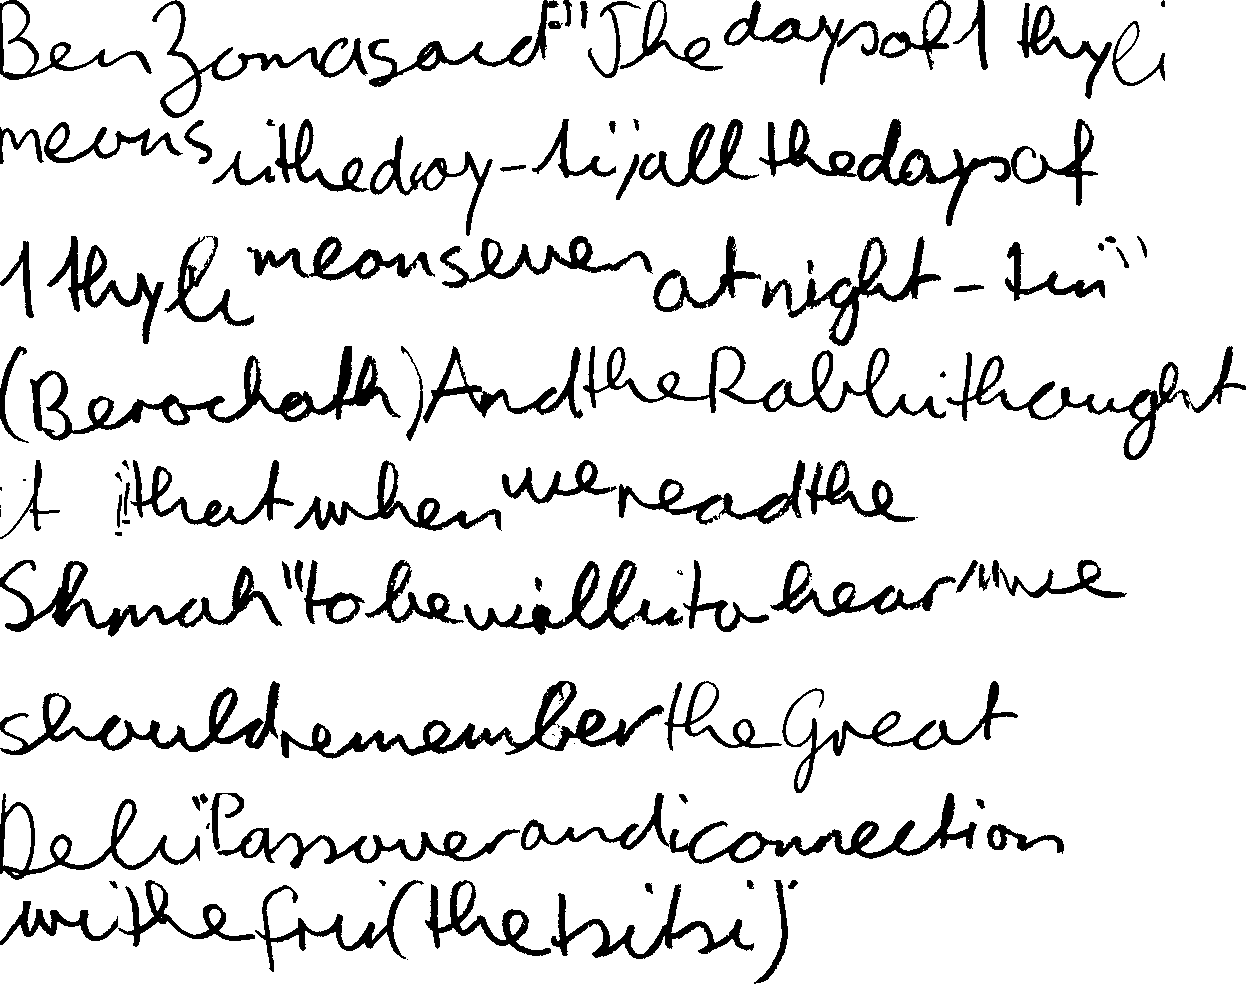 Ben Zoma said:"The days of 1 thy li
means i the day - 1 i; all the days of
1 thy li means even at night - 1 i"
(Berochoth) And the Rabbi thought
it that when we read the
Shmah "to be willi to hear" we
should remember the Great
Deli "Passover and i connection
wi the fri (the tsitsi)"